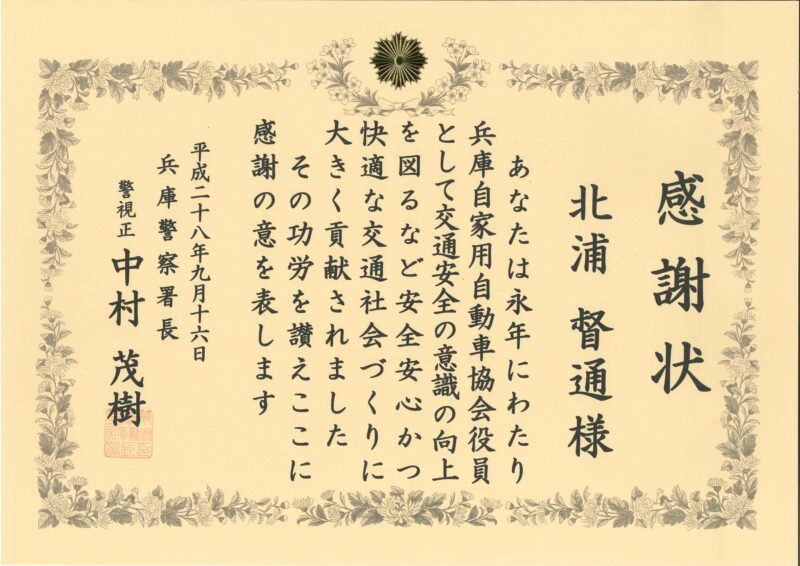 感謝状
北浦 督通様
あなたは永年にわたり
兵庫自家用自動車協会役員
として交通安全の意識の向上
を図るなど安全安心かつ
快適な交通社会づくりに
大きく貢献されました
その功労を讃えここに
感謝の意を表します
平成二十八年九月十六日
兵庫警察署長
警視正 中村 茂樹